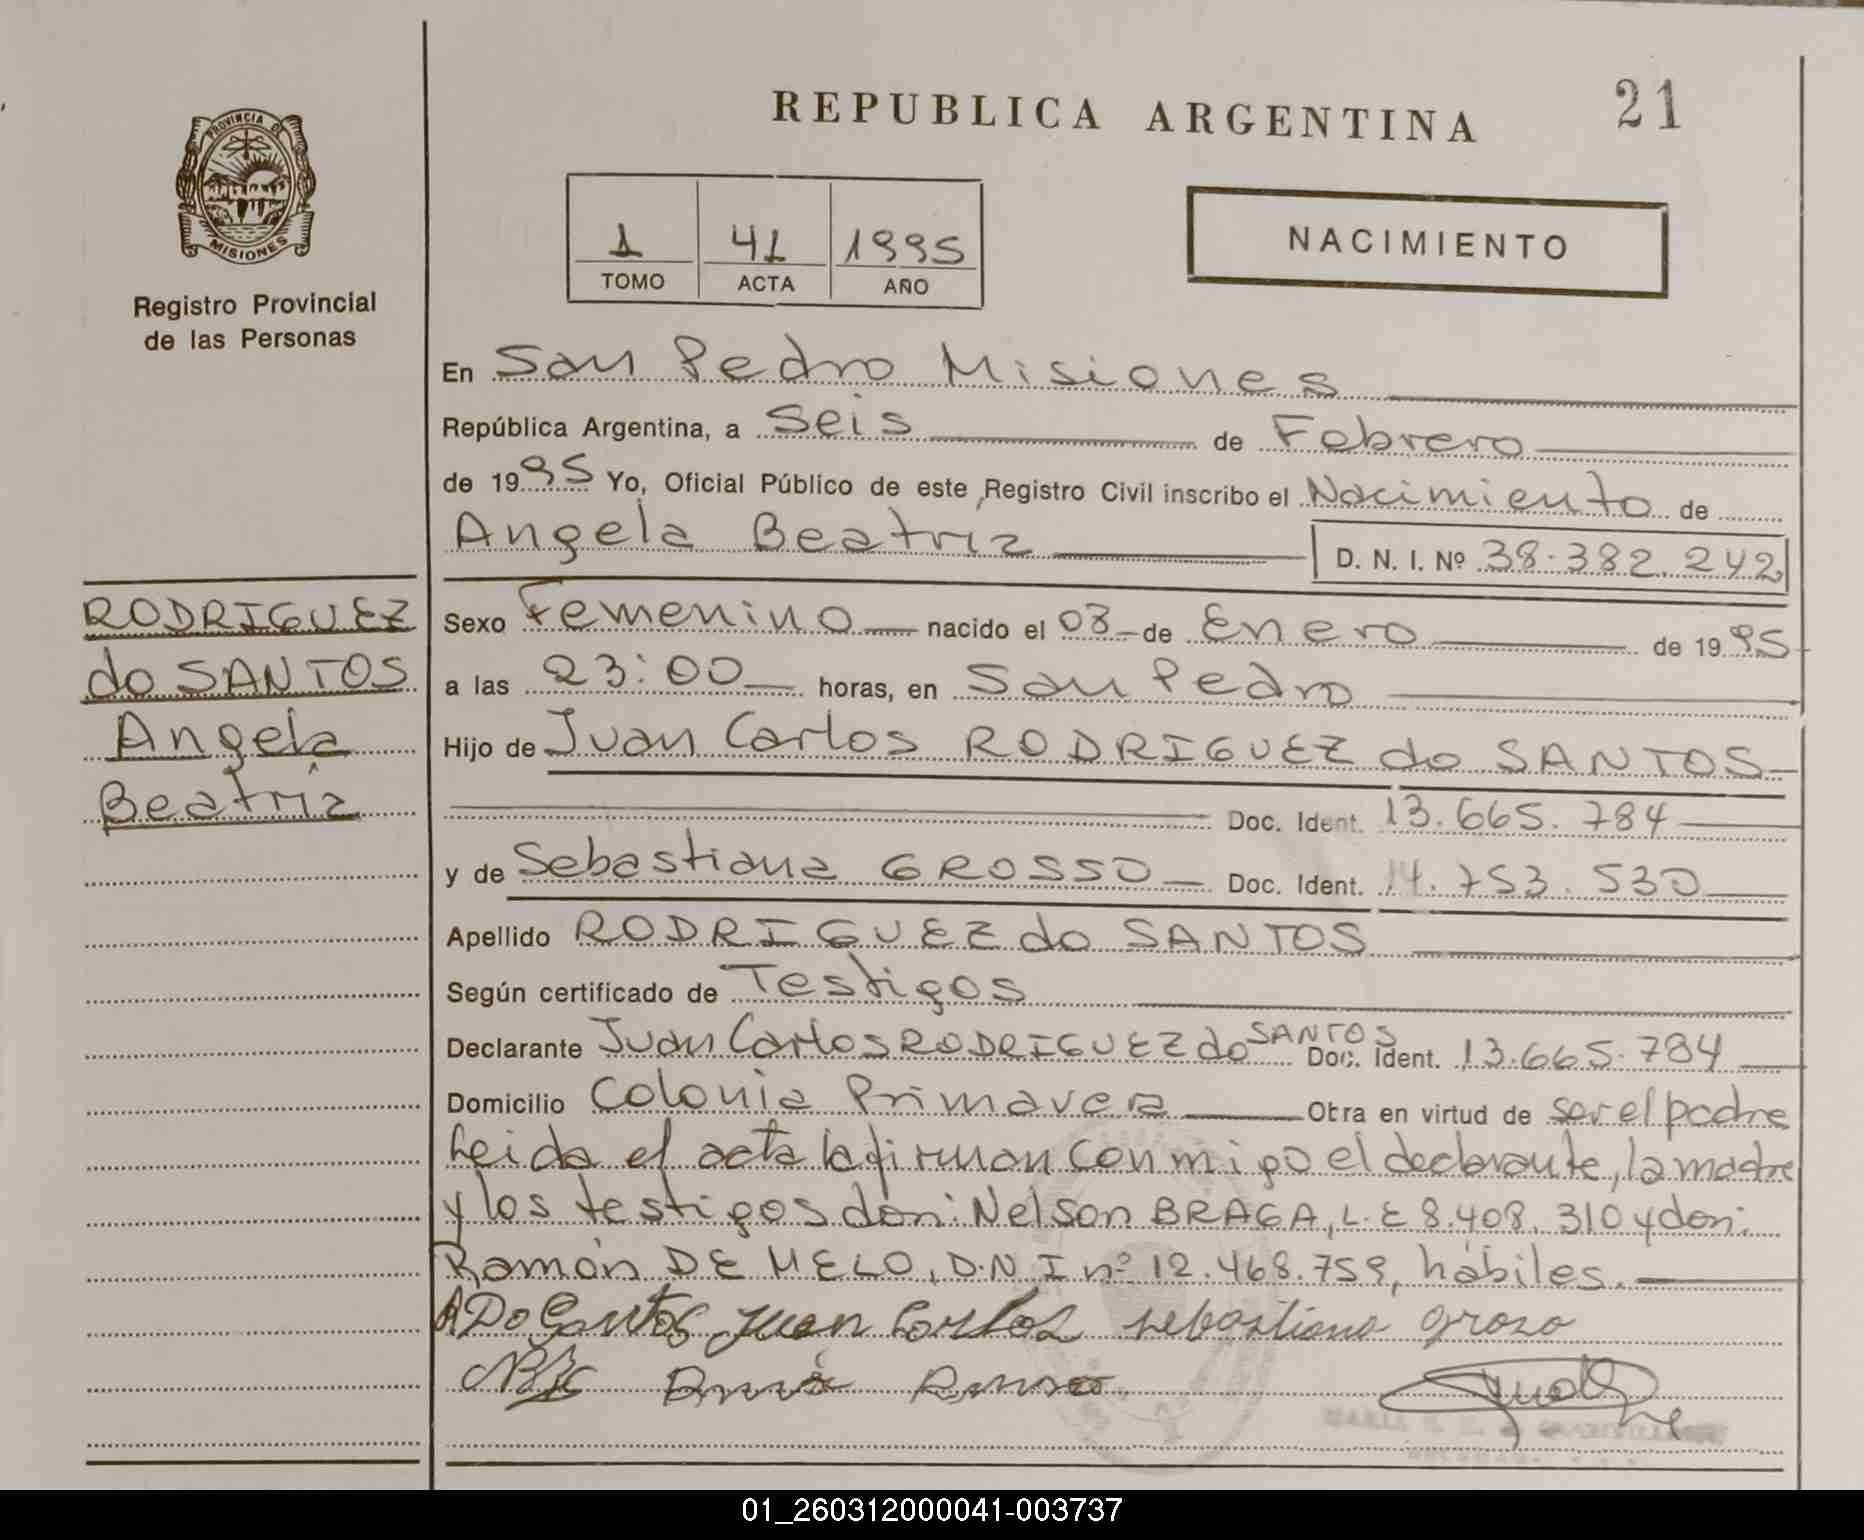 REPUBLICA ARGENTINA
21
PROVINCIA DE
MISIONES
Registro Provincial
de las Personas
1 41 1995
TOMO ACTA AÑO
NACIMIENTO
En San Pedro Misiones
República Argentina, a Seis de Febrero
de 1995 Yo, Oficial Público de este Registro Civil inscribo el Nacimiento de
Angela Beatriz D. N. I. Nº 38.382.242
RODRIGUEZ
do SANTOS
Angela
Beatriz
Sexo Femenino nacido el 03 de Enero de 1995
a las 23:00 horas, en San Pedro
Hijo de Juan Carlos RODRIGUEZ do SANTOS
Doc. Ident. 13.665.784
y de Sebastiana GROSSO Doc. Ident. 14.753.530
Apellido RODRIGUEZ do SANTOS
Según certificado de Testigos
Declarante Juan Carlos RODRIGUEZ do SANTOS Doc. Ident. 13.665.784
Domicilio Colonia Primavera Obra en virtud de ser el padre
Leida el acta la firman conmigo el declarante, la madre
y los testigos don: Nelson BRAGA, L.E 8.408.310 y don:
Ramón DE MELO, D.N.I nº 12.468.759, hábiles.
R Do Santos Juan Carlos sebastiana groso
01_260312000041-003737